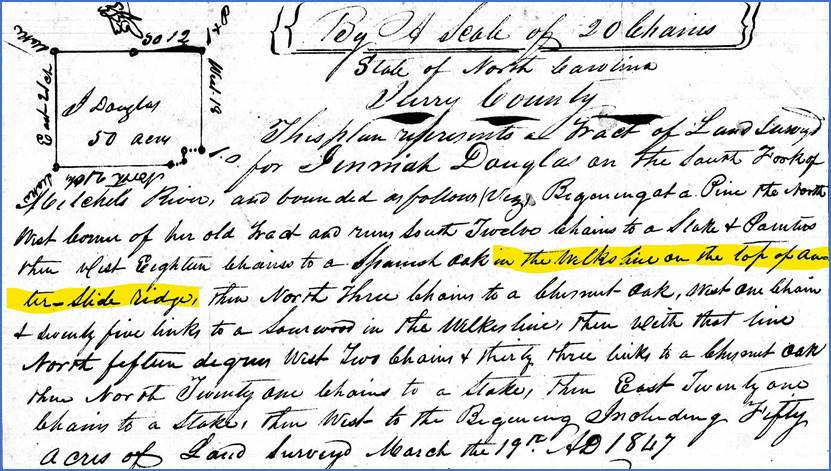 By A Scale of 20 Chains
State of North Carolina
Surry County
This plan represents a Tract of Land Survyd
for Jemimah Douglas on the South Fork of
Mitchels River, and bounded as follows (Viz) Begening at a Pine the North
West Corner of her old Tract and runs South Twelve Chains to a Stake & Pointers
then West Eighteen Chains to a Spanish oak in the Wilks line on the top of an
ter-Slide ridge, then North Three Chains to a Chesnut Oak, West one Chain
& seventy five links to a Sourwood in the Wilkes line, then with that line
North fifteen degrees West Two Chains & thirty three links to a Chesnut oak
then North Twenty one Chains to a Stake, then East Twenty one
Chains to a Stake, then West to the Begening Including Fifty
acres of Land Surveyd March the 19th AD 1847
So 12
West 18
East 21 ch
J Douglas
50 acres